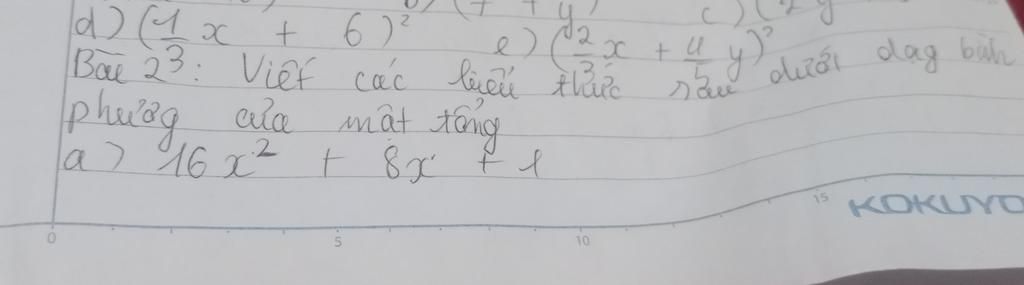 d) (1/3 x + 6)² e) (2/3 x + 4/5 y)²
Bài 2: Viết các biểu thức sau dưới dạg bình
phương của một tổng
a) 16x² + 8x + 1
15 KOKUYO
0 5 10